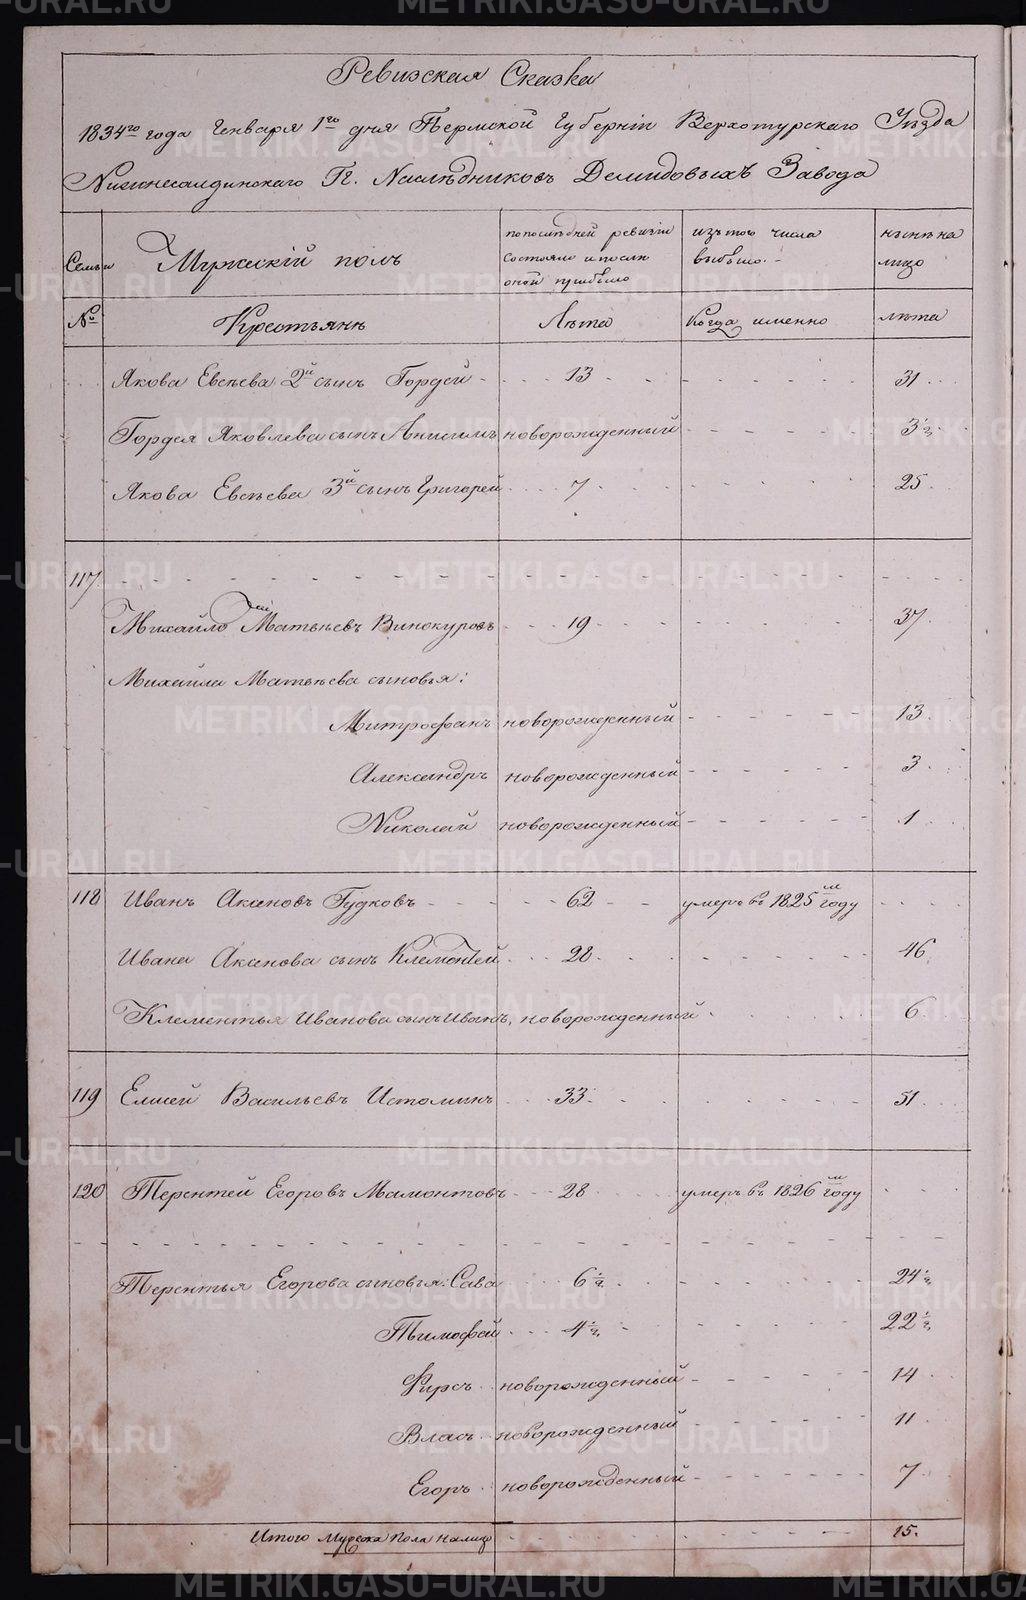 Ревизская Сказка
1834го года Генваря 1го дня Пермской Губернiи Верхотурскаго Уѣзда
Нижнесалдинскаго Гг. Наслѣдниковъ Демидовыхъ Завода
Семьи Мужескiй полъ по послѣдней ревизiи состояло и после оной прибыло изъ того числа выбыло нынѣ на лицо
№ Крестьяне Лѣта Когда именно лѣта
Якова Евсѣева 2й сынъ Гордей 13 31
Гордея Яковлева сынъ Анисимъ новорожденный 3½
Якова Евсѣева 3й сынъ Григорей 7 25
117
Михайло Матвѣевъ Винокуровъ 19 37
Михаила Матвѣева сыновья:
Митрофанъ новорожденный 13
Александръ новорожденный 3
Николай новорожденный 1
118 Иванъ Аксеновъ Гудковъ 62 умеръ въ 1825м году
Ивана Аксенова сынъ Клементей 28 46
Клементья Иванова сынъ Иванъ, новорожденный 6
119 Елисей Васильевъ Истоминъ 33 51
120 Терентей Егоровъ Мамонтовъ 28 умеръ въ 1826м году
Терентья Егорова сыновья: Сава 6½ 24½
Тимофей 4½ 22½
Фирсъ новорожденный 14
Власъ новорожденный 11
Егоръ новорожденный 7
Итого Мужеска Пола налицо 15.
METRIKI.GASO-URAL.RU